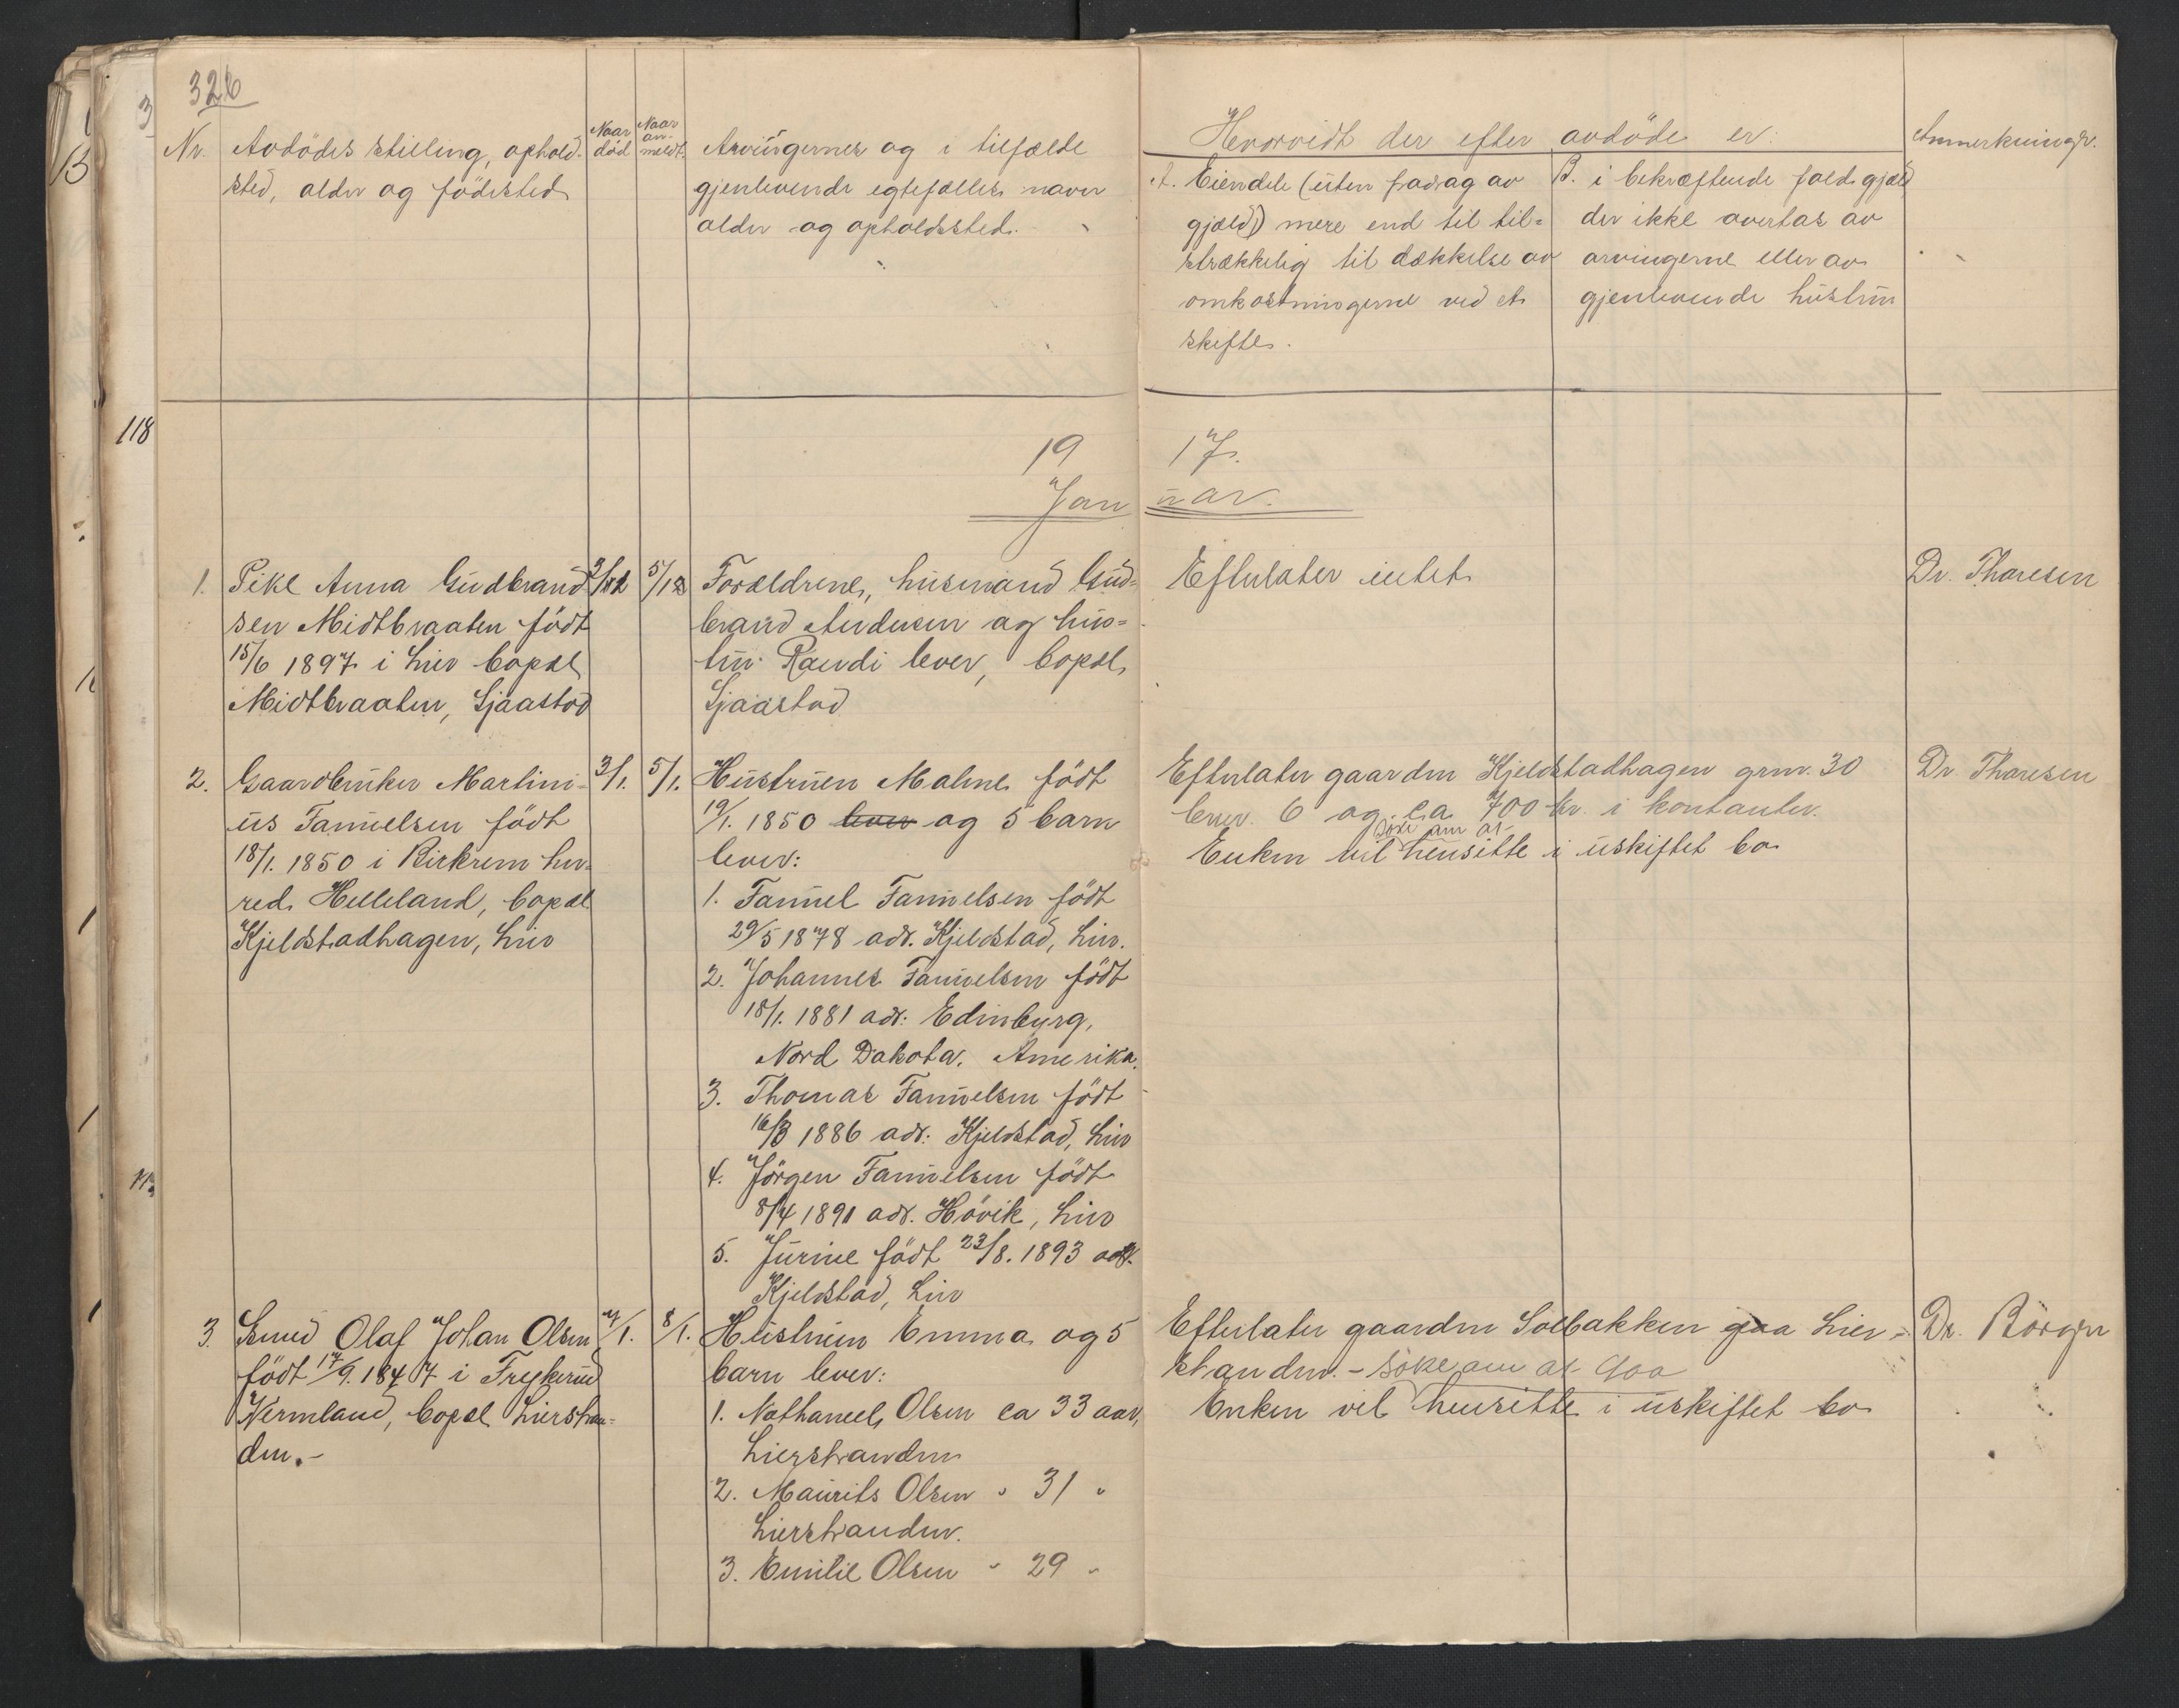 326
Nr.
Avdödes stilling, ophold-
sted, alder og födested
Naar
död
Naar
an-
meldt
Arvingernes og i tilfælde
gjenlevende egtefælles navn
alder og opholdssted.
Hvorvidt der efter avdöde er:
A. Eiendele (uten fradrag av
gjæld) mere end til til-
strækkelig til dækkelse av
omkostningerne ved et
skifte.
B. i bekræftende fald gjæld
der ikke overtas av
arvingerne eller av
gjenlevende hustru
Anmerkninger.
118
19 17.
Januar.
1. Pike Anna Gudbrand-
sen Midtbraaten födt
15/6 1897 i Lier bopæl
Midtbraaten, Sjaastad
3/12
5/12
Forældrene, husmand Gud-
brand Andersen og hus-
tru Randi lever, bopæl
Sjaastad
Efterlater intet
Dr. Thoresen
2. Gaardbruker Martini-
us Tannelsen födt
18/1. 1850 i Birkrem her-
red. Helleland, bopæl
Kjeldstadhagen, Lier
3/1.
5/1.
Hustruen Malene födt
19/1. 1850 lever og 5 barn
lever:
1. Tannel Tannelsen födt
29/5 1878 adr. Kjeldstad, Lier.
2. Johannes Tannelsen födt
18/1. 1881 adr: Edinburg,
Nord Dakota. Amerika.
3. Thomas Tannelsen födt
16/3 1886 adr: Kjeldstad, Lier
4. Jörgen Tannelsen födt
8/4 1891 adr. Hövik, Lier
5. Jurine födt 23/8. 1893 adr.
Kjeldstad, Lier
Efterlater gaarden Kjeldstadhagen grnr. 30
bnr. 6 og ca 700 kr. i kontanter.
söke om at
Enken vil hensitte i uskiftet bo
Dr. Thoresen
3. Smed Olaf Johan Olsen
födt 17/9. 1847 i Frykerud
Vermland, bopæl Lierstran-
den.-
7/1.
8/1.
Hustruen Emma og 5
barn lever:
1. Nathaneel Olsen ca 33 aar,
Lierstranden
2. Maurits Olsen " 31 "
Lierstranden.
3. Emilie Olsen " 29 "
Efterlater gaarden Solbakken paa Lier-
stranden. - söke om at
Enken vil hensitte i uskiftet bo
Dr. Börger